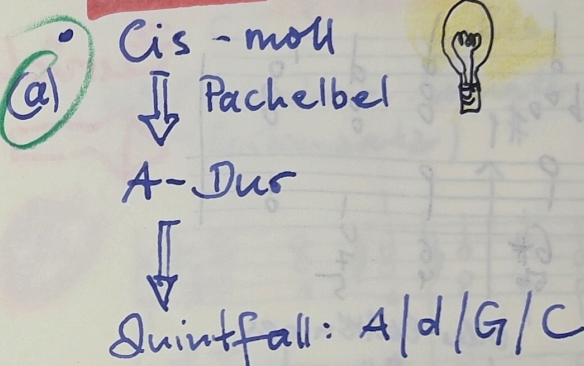 (a) • Cis-moll
⇓ Pachelbel
A-Dur
⇓
Quintfall: A/d/G/C